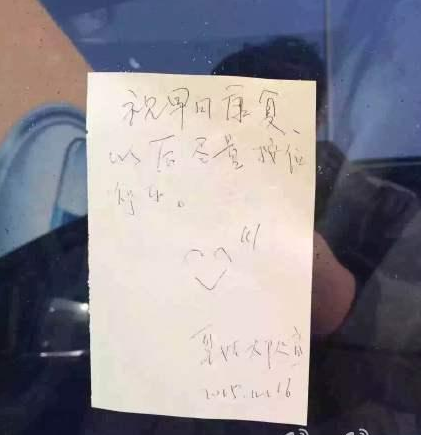 祝早日康复、
以后尽量按位
停车。
2015.12.16